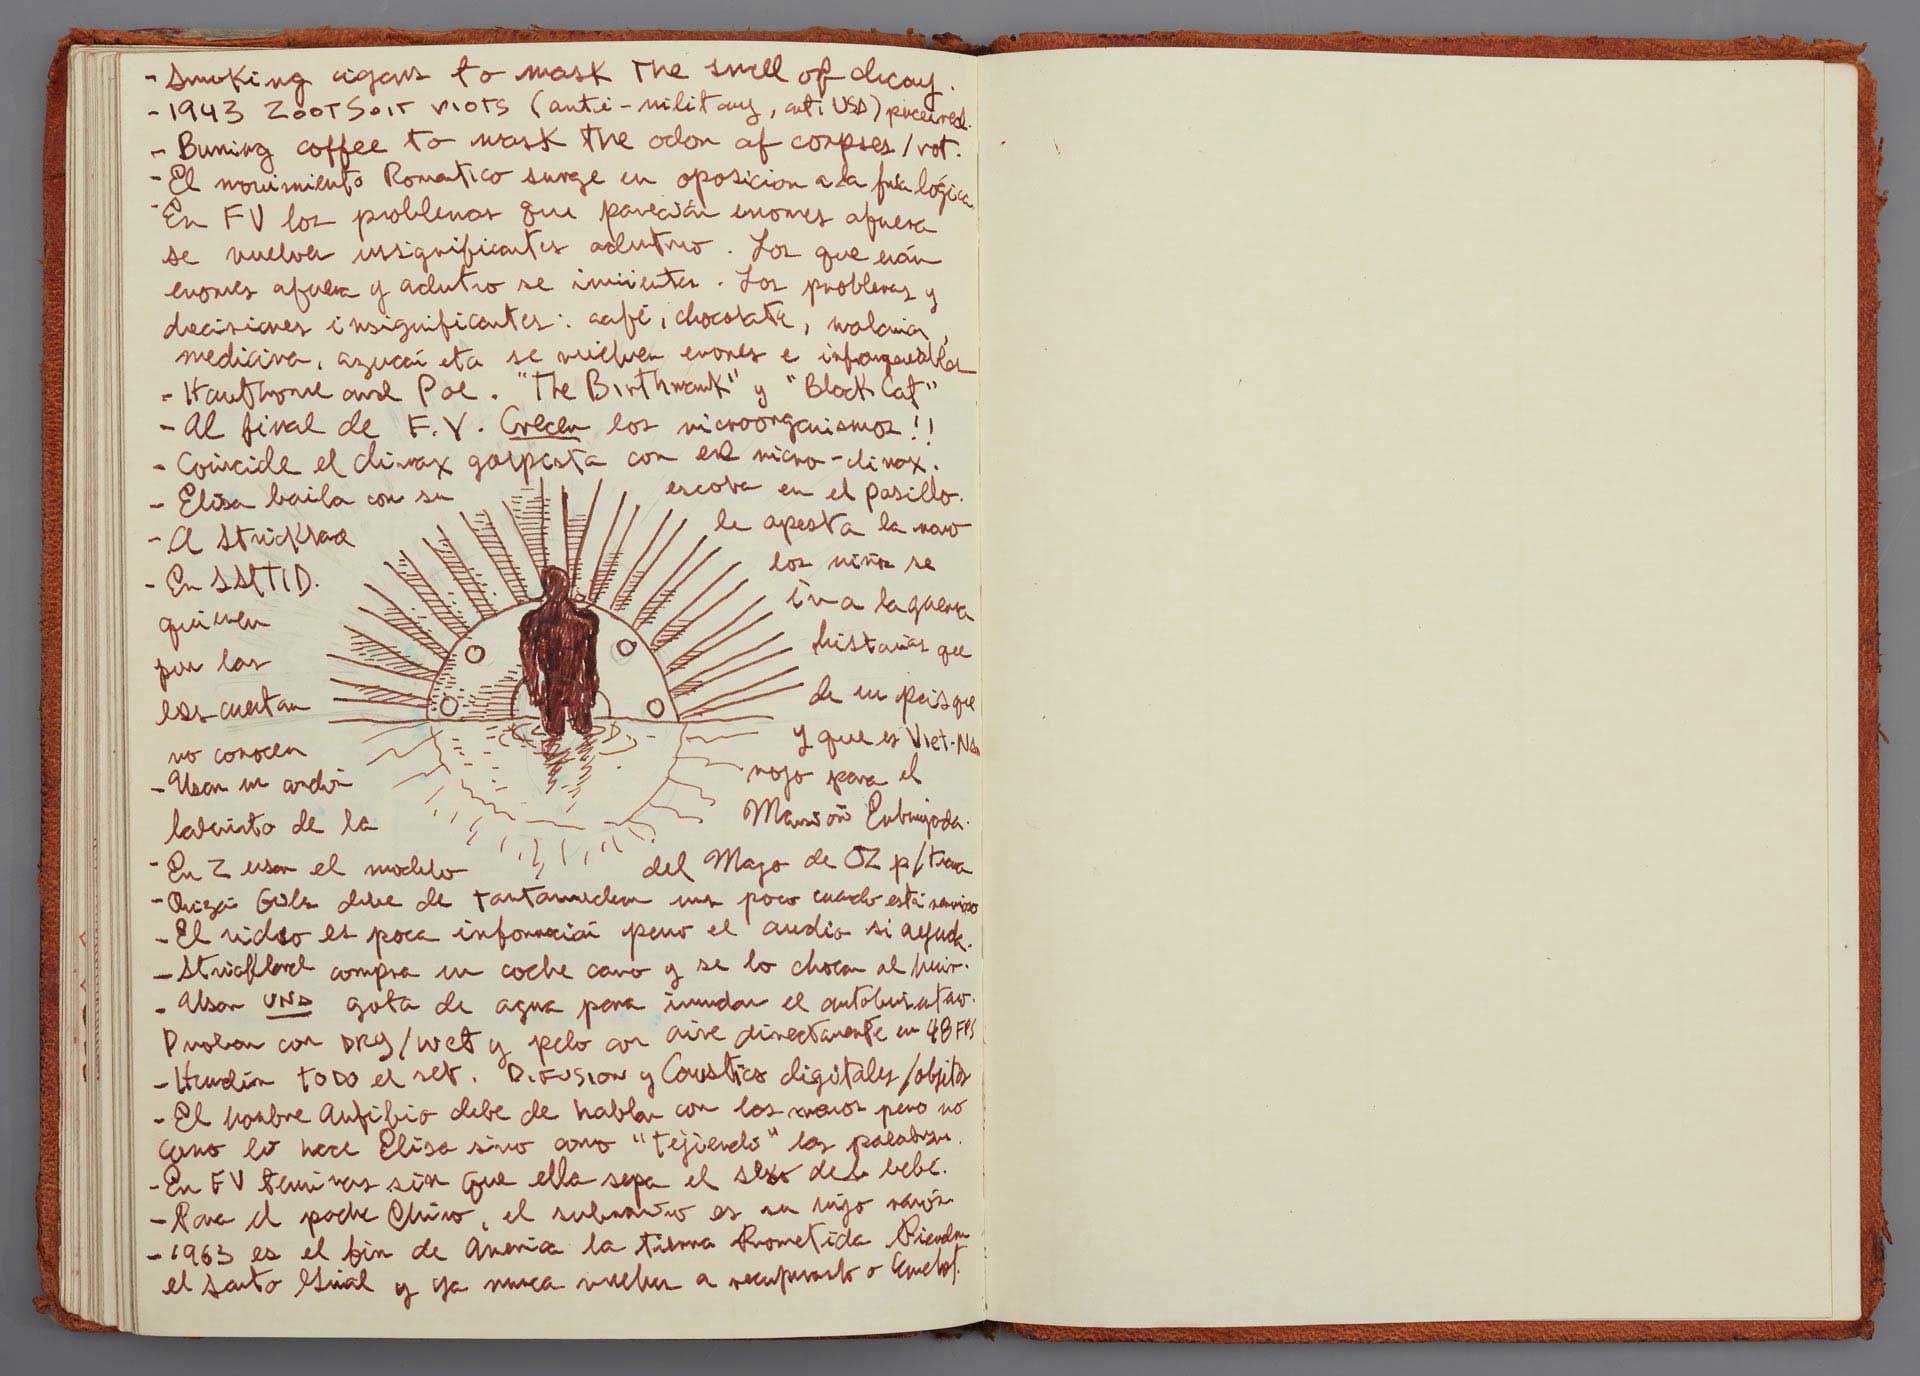 - Smoking cigars to mask the smell of decay.
- 1943 Zoot Soit riots (anti-military, anti USA) perceived.
- Burning coffee to mask the odor of corpses/rot.
- El movimiento Romantico surge en oposicion a la fría lógica.
- En FV los problemas que parecián enormes afuera
se vuelven insignificantes adentro. Los que erán
enormes afuera y adentro se invierten. Los problemas y
decisiones insignificantes: café, chocolate,
medicina, azucar eta se vuelven enormes e
- Hawthorne and Poe. "The Birthmark" y "Black Cat"
- Al final de F.V. Crecen los microorganismos!!
- Coincide el climax golpista con el micro-climax.
- Elisa baila con su escoba en el pasillo.
- A Strickland le apesta la mano
- En SSTTID. los niños se
quieren ir a la guerra
por las historias que
les cuentan de un pais que
no conocen y que es Viet-Nam
- Usar un rojo para el
laberinto de la Mansión Embrujada.
- En Z usar el modelo del Mago de OZ p/
- Quizá Giles debe de tartamudear un poco cuando está nervioso
- El video es poca información pero el audio si ayuda.
- Strickland compra un coche caro y se lo chocan al
- Usar UNA gota de agua para inundar el
Probar con DRY/WET y pelo con aire directamente en 48 FPS
- Hundir TODO el set. DIFUSION y Caustics digitales/objetos
- El hombre Anfibio debe de hablar con las manos pero no
como lo hace Elisa sino como "tejiendo" las palabras.
- En FV terminas sin que ella sepa el sexo del bebé.
- Para el padre Chino, el submarino es su hijo varón
- 1963 es el fin de America la tierra Prometida Pierden
el Santo Grial y ya nunca vuelven a recuperarlo o Camelot.